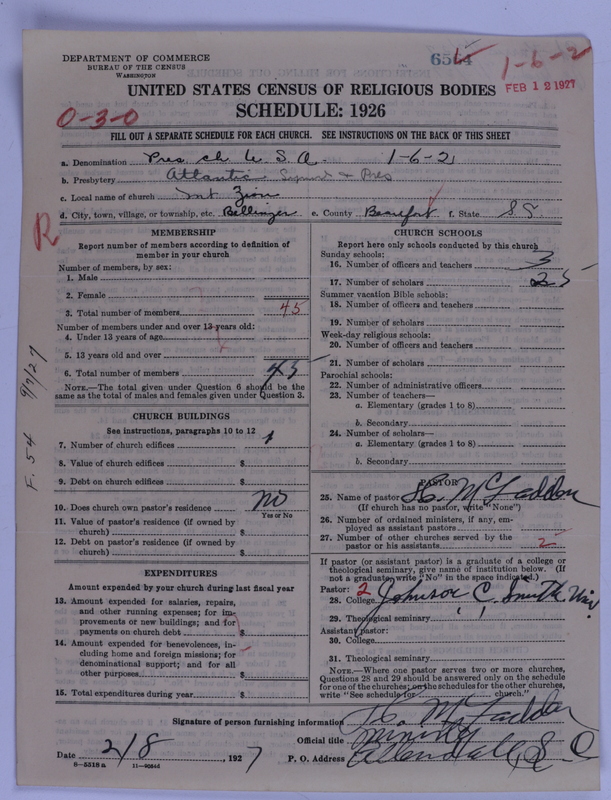 DEPARTMENT OF COMMERCE
BUREAU OF THE CENSUS
WASHINGTON
1-6-2
FEB 12 1927
UNITED STATES CENSUS OF RELIGIOUS BODIES
SCHEDULE: 1926
0-3-0
FILL OUT A SEPARATE SCHEDULE FOR EACH CHURCH. SEE INSTRUCTIONS ON THE BACK OF THIS SHEET
a. Denomination Pres ch U.S.A. 1-6-2
b. Presbytery Atlantic
c. Local name of church Mt Zion
d. City, town, village, or township, etc. Bellinger e. County Beaufort f. State S C
R
F. 54 9/7/27
MEMBERSHIP
Report number of members according to definition of member in your church
Number of members, by sex:
1. Male
2. Female
3. Total number of members 45
Number of members under and over 13 years old:
4. Under 13 years of age
5. 13 years old and over
6. Total number of members 45
NOTE.—The total given under Question 6 should be the
same as the total of males and females given under Question 3.
CHURCH BUILDINGS
See instructions, paragraphs 10 to 12
7. Number of church edifices 1
8. Value of church edifices $
9. Debt on church edifices $
10. Does church own pastor's residence No
Yes or No
11. Value of pastor's residence (if owned by
church) $
12. Debt on pastor's residence (if owned by
church) $
EXPENDITURES
Amount expended by your church during last fiscal year
13. Amount expended for salaries, repairs,
and other running expenses; for im-
provements or new buildings; and for
payments on church debt $
14. Amount expended for benevolences, in-
cluding home and foreign missions; for
denominational support; and for all
other purposes $
15. Total expenditures during year $
CHURCH SCHOOLS
Report here only schools conducted by this church
Sunday schools:
16. Number of officers and teachers 3
17. Number of scholars 25
Summer vacation Bible schools:
18. Number of officers and teachers
19. Number of scholars
Week-day religious schools:
20. Number of officers and teachers
21. Number of scholars
Parochial schools:
22. Number of administrative officers
23. Number of teachers—
a. Elementary (grades 1 to 8)
b. Secondary
24. Number of scholars—
a. Elementary (grades 1 to 8)
b. Secondary
PASTOR
25. Name of pastor McFadden
(If church has no pastor, write "None")
26. Number of ordained ministers, if any, em-
ployed as assistant pastors
27. Number of other churches served by the
pastor or his assistants 2
If pastor (or assistant pastor) is a graduate of a college or
theological seminary, give name of institution below. (If
not a graduate, write "No" in the space indicated.)
Pastor: 2
28. College Johnson C. Smith Uni
29. Theological seminary " "
Assistant pastor:
30. College
31. Theological seminary
NOTE.—Where one pastor serves two or more churches,
Questions 28 and 29 should be answered only on the schedule
for one of the churches; on the schedules for the other churches,
write "See schedule for church."
Signature of person furnishing information McFadden
Official title Minister
Date 2/8, 1927 P. O. Address Allendale, S C
8-5318a 11-9064